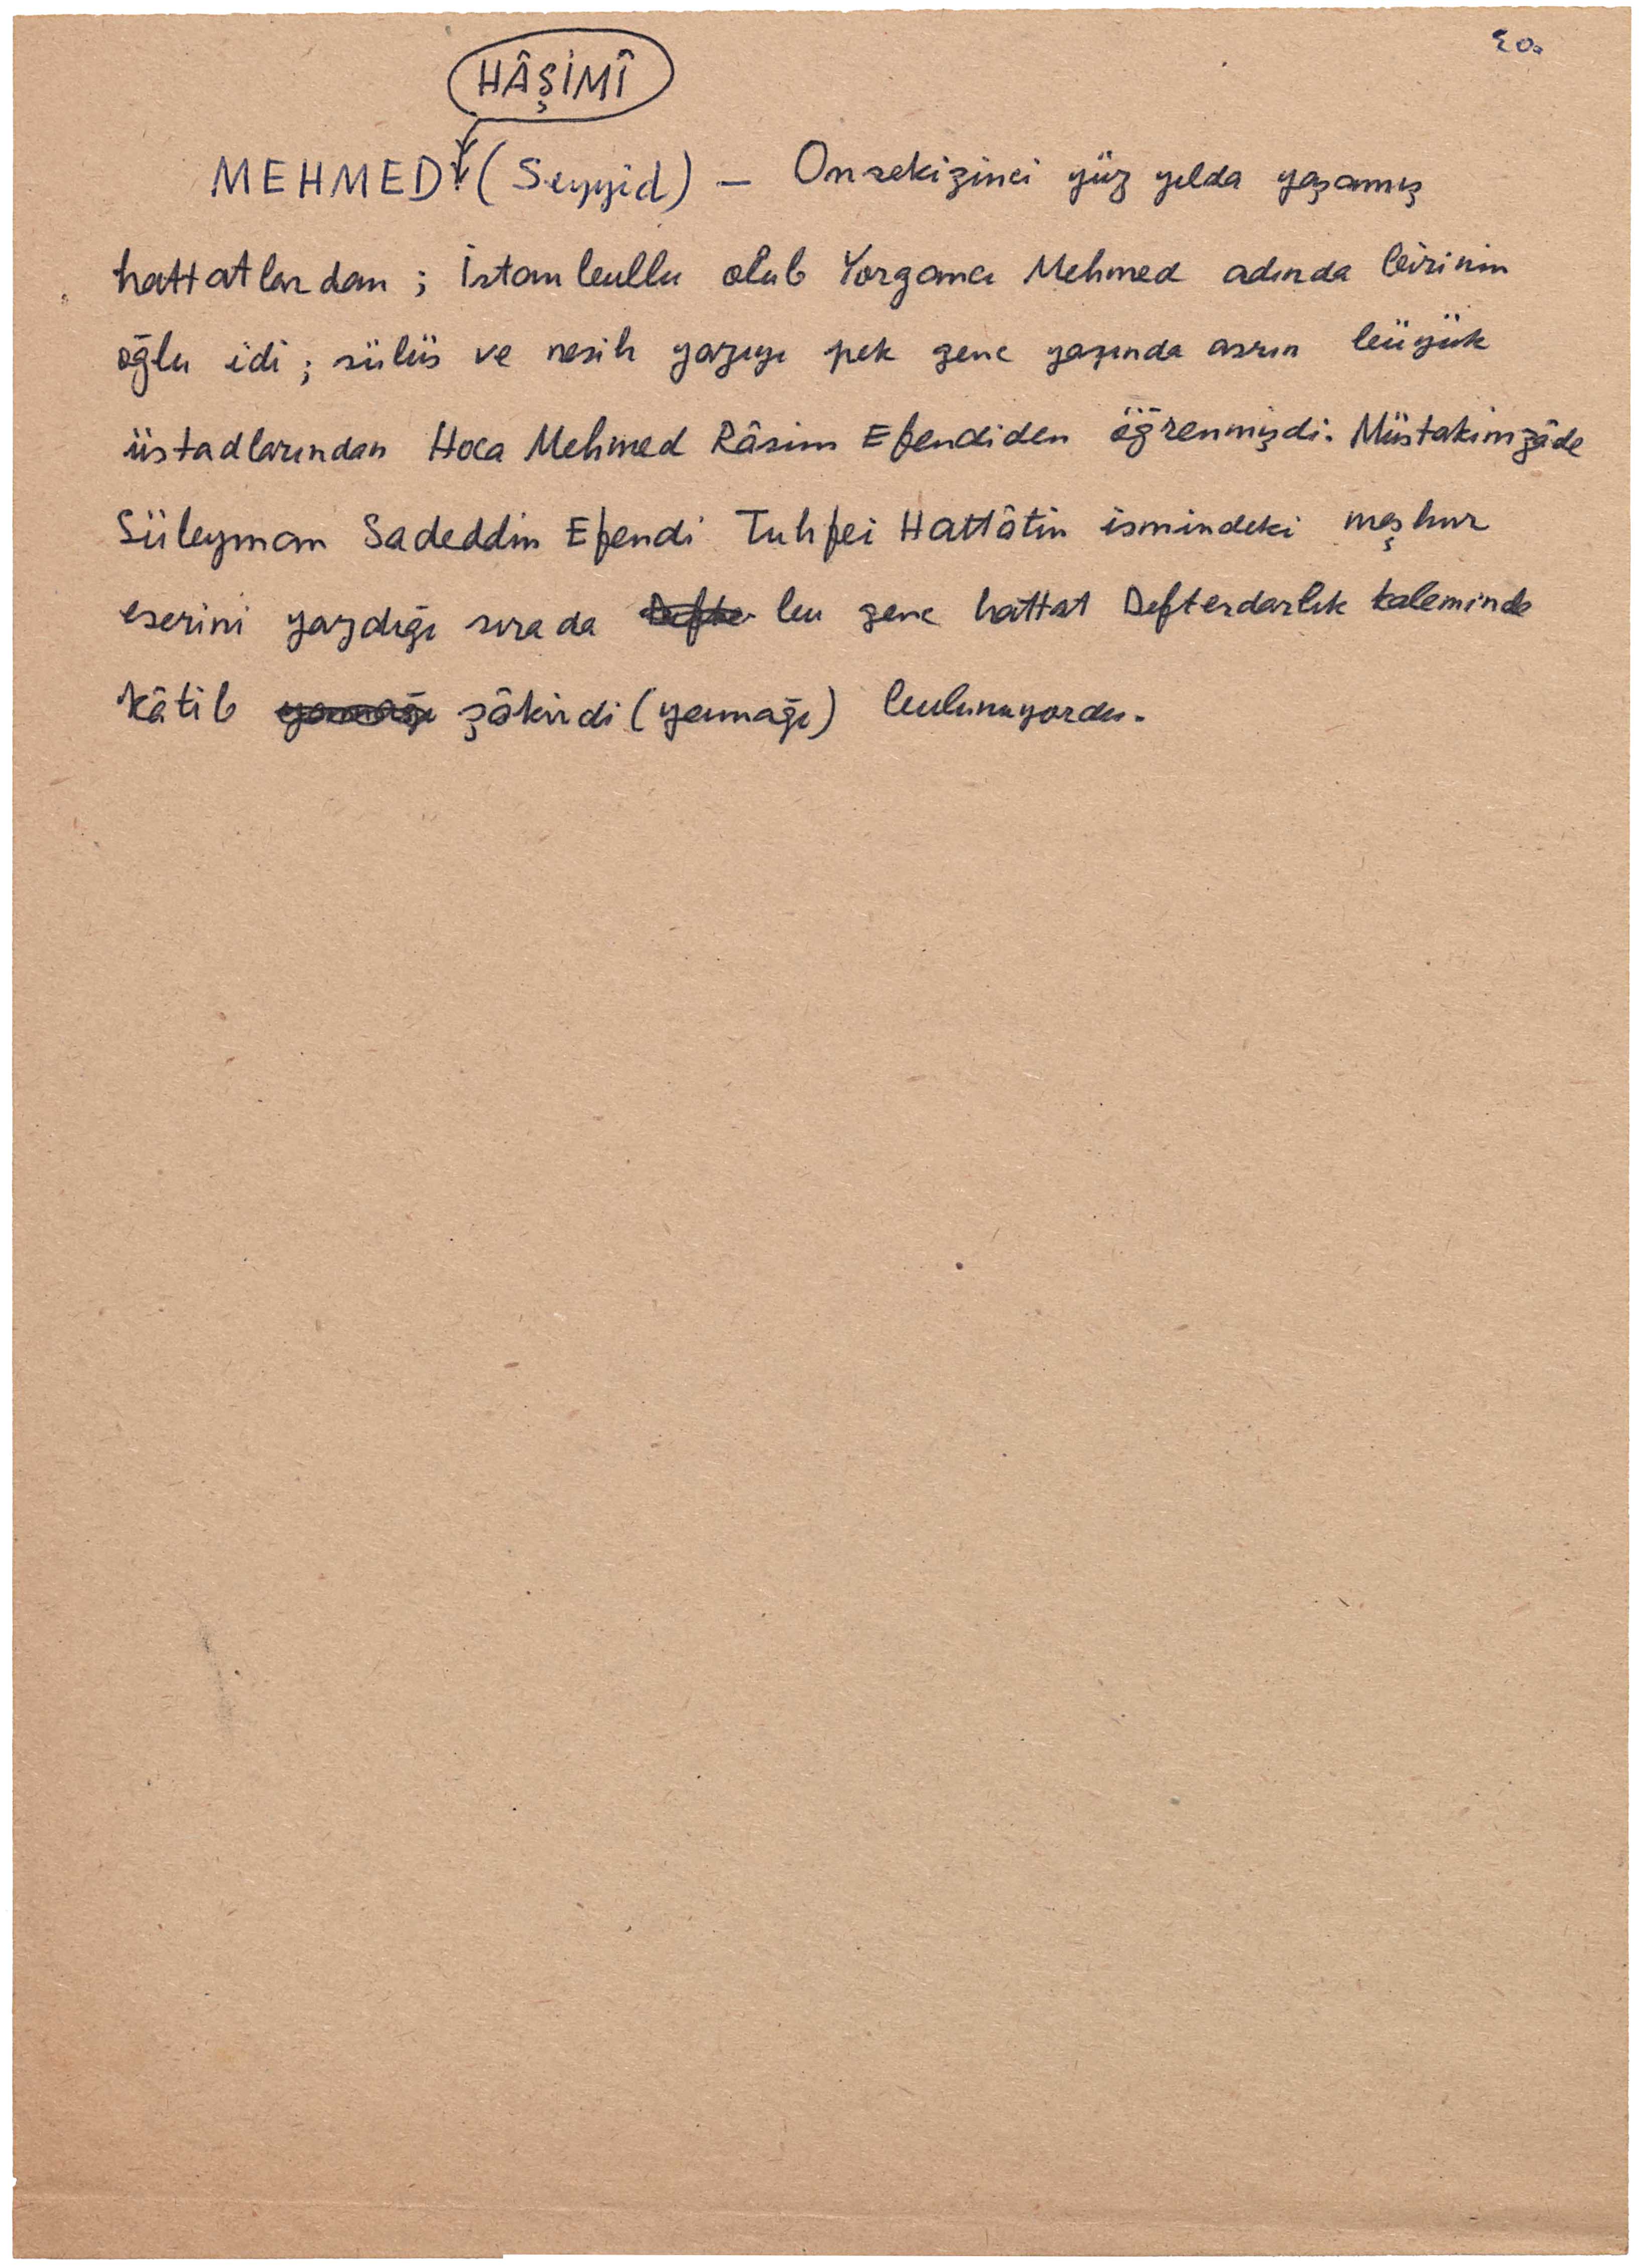 ٤٥٠
HÂŞİMÎ
MEHMED (Seyyid) — Onsekizinci yüz yılda yaşamış
hattatlardan ; İstanbullu olub Yorgancı Mehmed adında birinin
oğlu idi ; sülüs ve nesih yazıyı pek genc yaşında asrın büyük
üstadlarından Hoca Mehmed Râsim Efendiden öğrenmişdi. Müstakimzâde
Süleyman Sadeddin Efendi Tuhfei Hattâtin ismindeki meşhur
eserini yazdığı sırada Defter bu genc hattat Defterdarlık kaleminde
kâtib yamağı şâkirdi (yamağı) bulunuyordu.